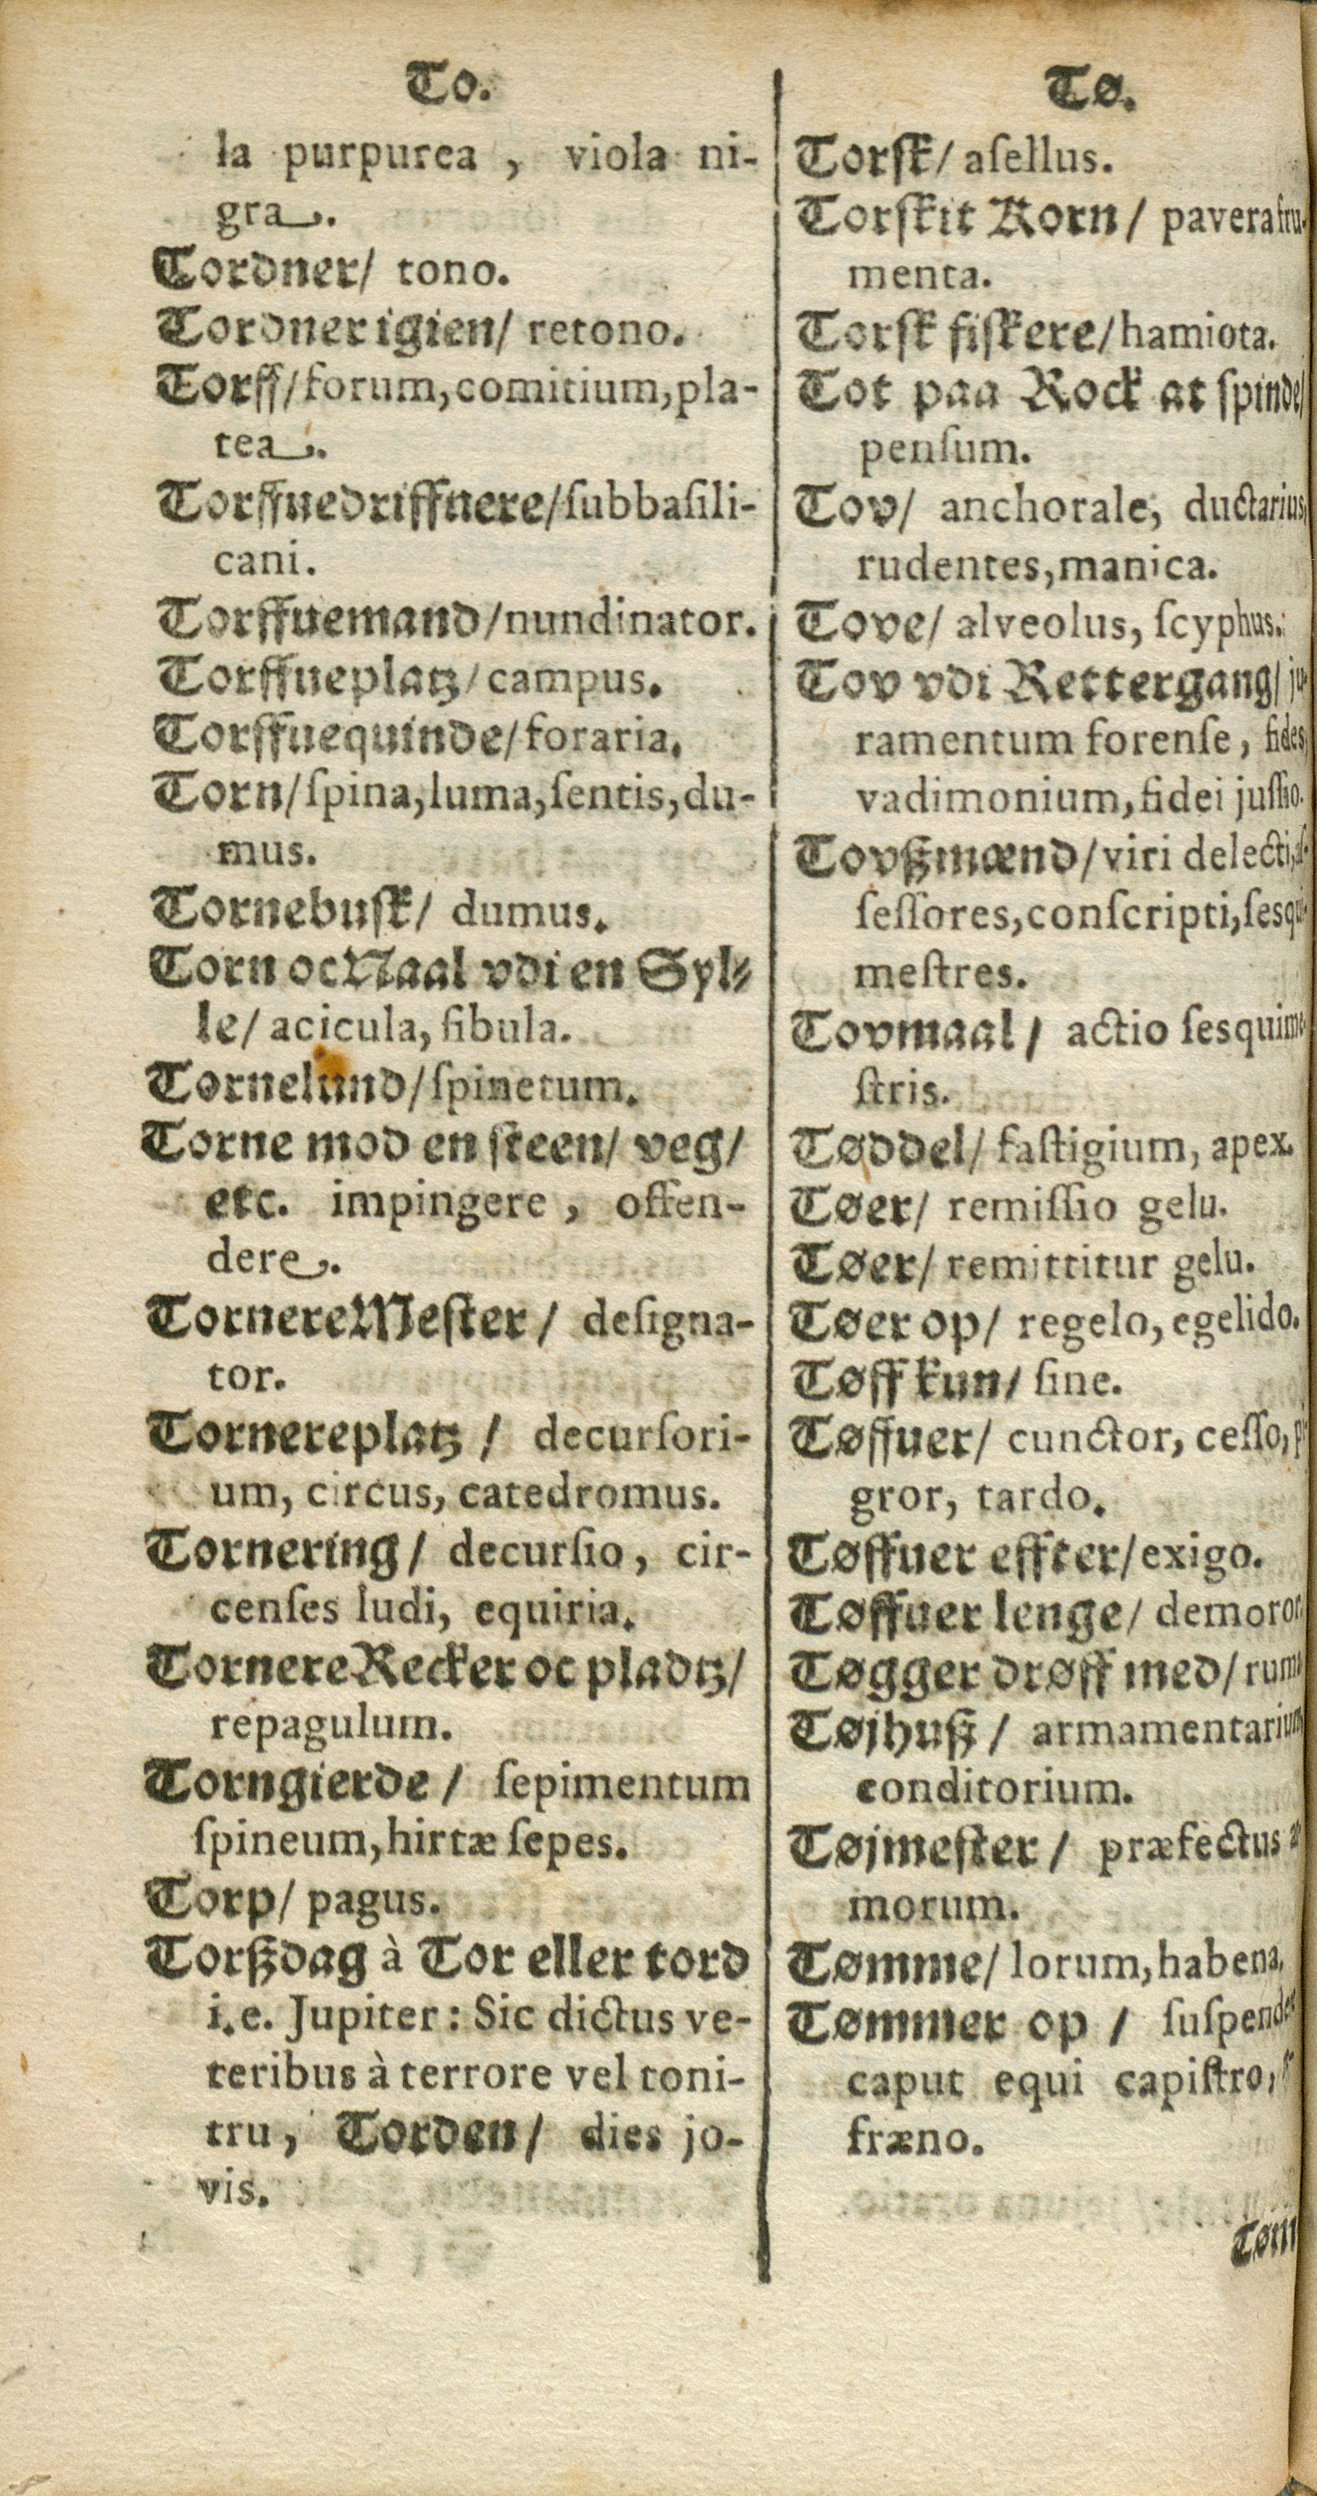 To.
la purpurea , viola ni-
gra.
Tordner/ tono.
Tordner igien/ retono.
Torff/forum,comitium,pla-
tea.
Torffuedriffuere/ſubbaſili-
cani.
Torffuemand/nundinator.
Torffueplatz/campus.
Torffuequinde/foraria.
Torn/ſpina,luma,ſentis,du-
mus.
Tornebuſk/ dumus.
Torn oc Naal vdi en Syl-
le/ acicula, fibula.
Tornelund/ſpinetum.
Torne mod en ſteen/ veg/
etc. impingere , offen-
dere.
Tornere Meſter/ deſigna-
tor.
Tornereplatz / decurſori-
um, circus, catedromus.
Tornering/ decurſio, cir-
cenſes ludi, equiria.
Tornere Recker oc pladtz/
repagulum.
Torngierde/ ſepimentum
ſpineum,hirtæ ſepes.
Torp/ pagus.
Torßdag à Tor eller tord
i.e. Jupiter: Sic dictus ve-
teribus à terrore vel toni-
tru, Torden/ dies jo-
vis.
Tø.
Torſk/ aſellus.
Torſkit Korn/ pavera fru-
menta.
Torſk fiſkere/hamiota.
Tot paa Rock at ſpinde/
penſum.
Tov/ anchorale, ductarius,
rudentes,manica.
Tove/ alveolus, ſcyphus.
Tov vdi Rettergang/ ju-
ramentum forenſe, fides,
vadimonium,fidei juſſio.
Tovßmænd/viri delecti,
ſeſſores,conſcripti,ſesqui-
meſtres.
Tovmaal/ actio ſesquime-
ſtris.
Tøddel/ faſtigium, apex.
Tøer/ remiſſio gelu.
Tøer/ remittitur gelu.
Tøer op/ regelo, egelido.
Tøff kun/ ſine.
Tøffuer/ cunctor, ceſſo, pi-
gror, tardo.
Tøffuer effter/exigo.
Tøffuer lenge/ demoror.
Tøgger drøff med/
Tøjhuß/ armamentarium,
conditorium.
Tøjmeſter/ præfectus
morum.
Tømme/ lorum,habena.
Tømmer op / ſuſpendere
caput equi capiſtro,
fræno.
Tøm